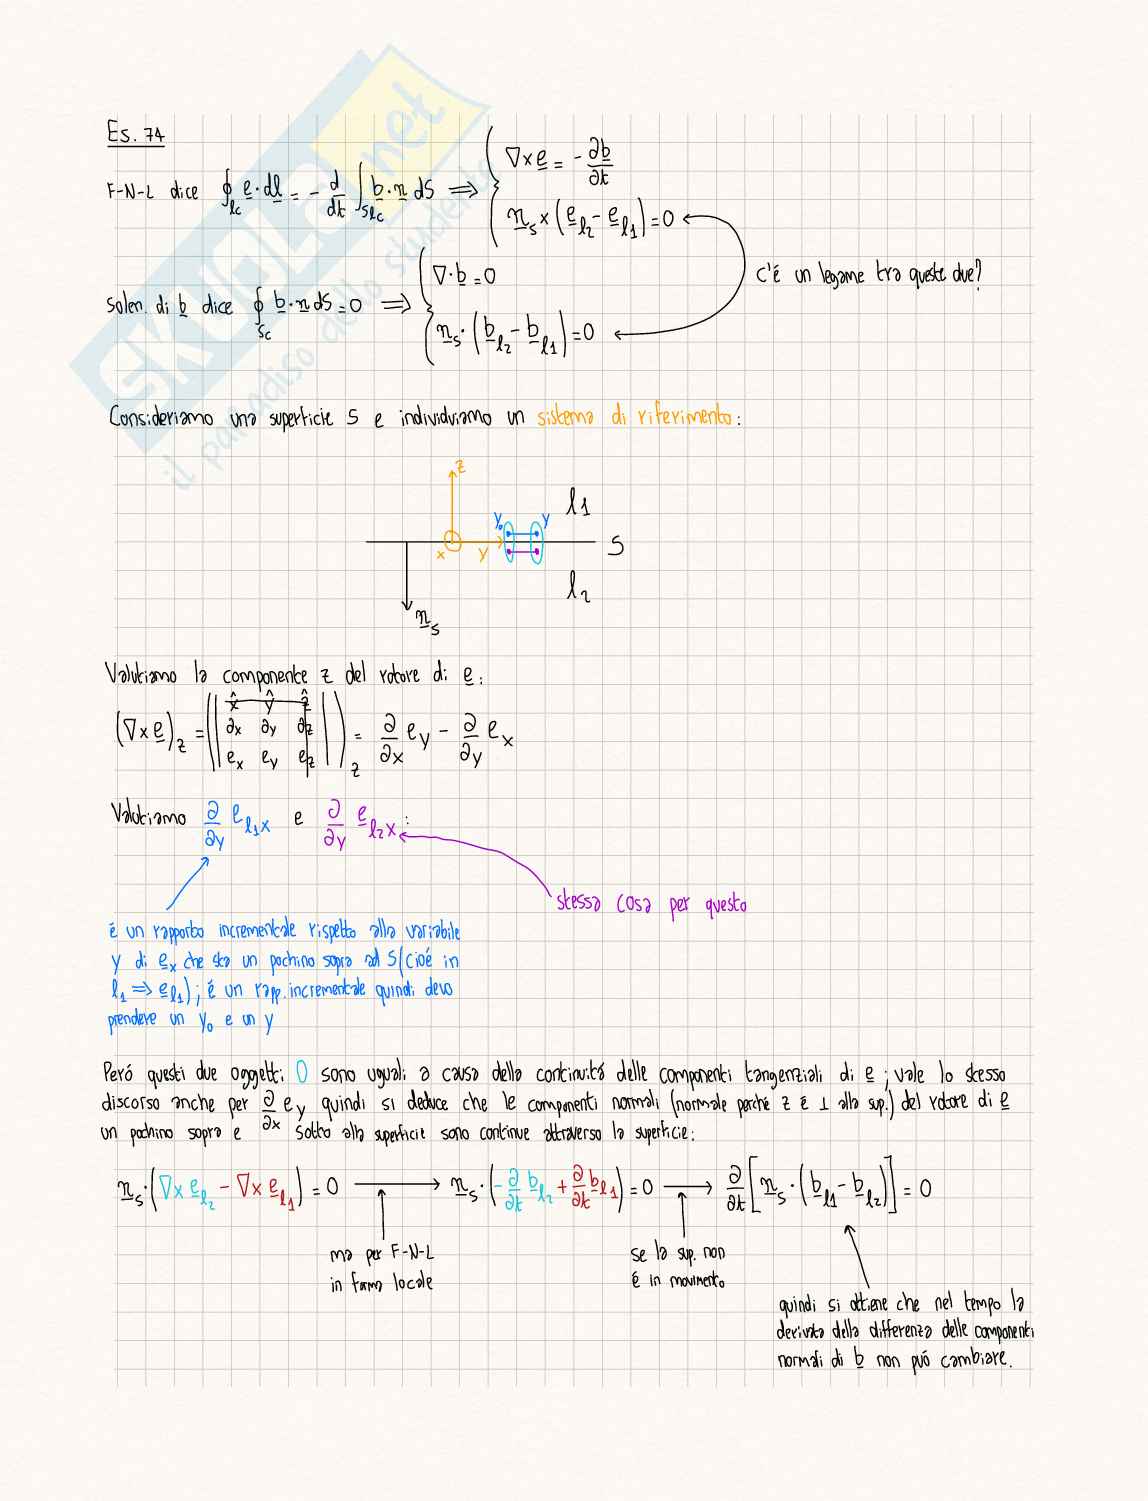 Es. 74
F-N-L dice ∮_lc e·dl = - d/dt ∫_Slc b·n dS ⟹ { ∇×e = - ∂b/∂t
n_s×(e_l2 - e_l1) = 0
c'é un legame tra queste due?
Solen. di b dice ∮_Sc b·n dS = 0 ⟹ { ∇·b = 0
n_s·(b_l2 - b_l1) = 0
SKUOLA.net
il paradiso dello studente
Consideriamo una superficie S e individuiamo un sistema di riferimento:
z
l1
y₀ y
x y
S
l2
n_s
Valutiamo la componente z del rotore di e:
(∇×e)_z = (| x̂ ŷ ẑ
∂x ∂y ∂z
e_x e_y e_z |)_z = ∂/∂x e_y - ∂/∂y e_x
Valutiamo ∂/∂y e_l1x e ∂/∂y e_l2x:
stessa cosa per questo
é un rapporto incrementale rispetto alla variabile
y di e_x che sta un pochino sopra ad S (cioé in
l1 ⟹ e_l1); é un rapp. incrementale quindi devo
prendere un y₀ e un y
Peró questi due oggetti 0 sono uguali a causa della continuitá delle componenti tangenziali di e; vale lo stesso
discorso anche per ∂/∂x e_y quindi si deduce che le componenti normali (normale perché z é ⊥ alla sup.) del rotore di e
un pochino sopra e sotto alla superficie sono continue attraverso la superficie:
n_s·(∇×e_l2 - ∇×e_l1) = 0 ⟶ n_s·(-∂/∂t b_l2 + ∂/∂t b_l1) = 0 ⟶ ∂/∂t [n_s·(b_l1 - b_l2)] = 0
ma per F-N-L
in forma locale
se la sup. non
é in movimento
quindi si ottiene che nel tempo la
derivata della differenza delle componenti
normali di b non puó cambiare.